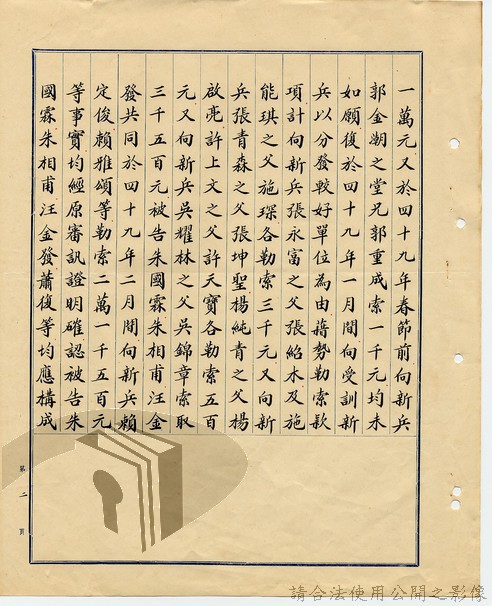 一萬元又於四十九年春節前向新兵
郭金潮之堂兄郭重成索一千元均未
如願復於四十九年一月間向受訓新
兵以分發較好單位為由藉勢勒索款
項計向新兵張永富之父張紹木及施
能琪之父施琛各勒索三千元又向新
兵張青森之父張坤聖楊純青之父楊
啟亮許上文之父許天寶各勒索五百
元又向新兵吳耀林之父吳錦章索取
三千五百元被告朱國霖朱相甫汪金
發共同於四十九年二月間向新兵賴
定俊賴雅頌等勒索二萬一千五百元
等事實均經原審訊證明確認被告朱
國霖朱相甫汪金發蕭復等均應構成
第二頁
請合法使用公開之影像